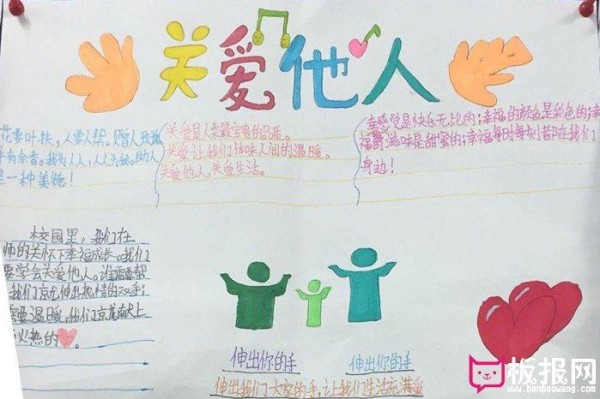 关爱他人
花要叶扶，人要人帮。赠人玫瑰
手有余香。我为人人，人人为我。助人
是一种美德！
关爱是人类最宝贵的品质。
关爱让我们体味人间的温暖。
关爱他人，关爱生活。
幸感觉是快乐无比的；幸福的颜色是彩色的；幸
福的滋味是甜蜜的；幸福每时每刻都在我们
身边！
校园里，我们在
师的关怀下幸福成长。我们
要学会关爱他人。谁需要帮
我们就伸出热情的双手；
需要温暖，我们就献上
火热的
伸出你的手
伸出你的手
伸出我们大家的手，让我们生活充满爱
板报网
www.banbaowang.com